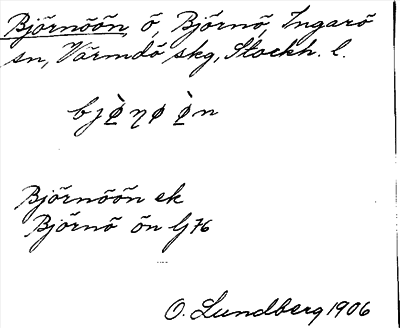 Björnöön, ö, Björnö, Ingarö
sn, Värmdö skg, Stockh. l.
bjø̀ṇø ø̀n
Björnöön ek
Björnö ön Gj 76
O. Lundberg 1906